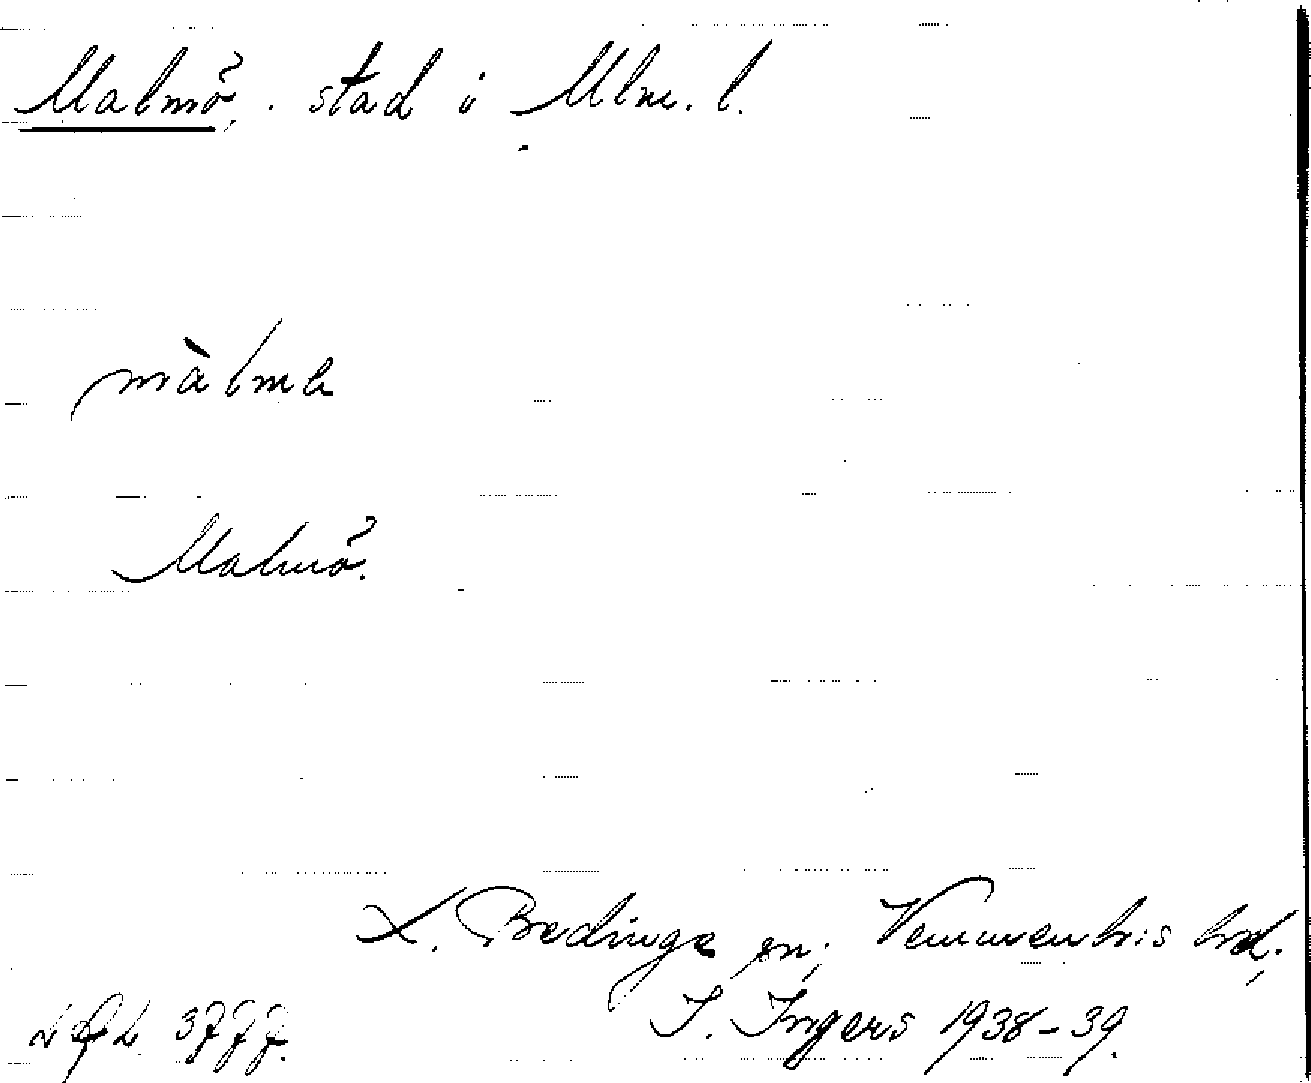 Malmö, . stad i Mlm. l.
màlmə
Malmö.
L. Bedinge sn, Vemmenhrs hrd.
I. Ingers 1938-39.
3777.